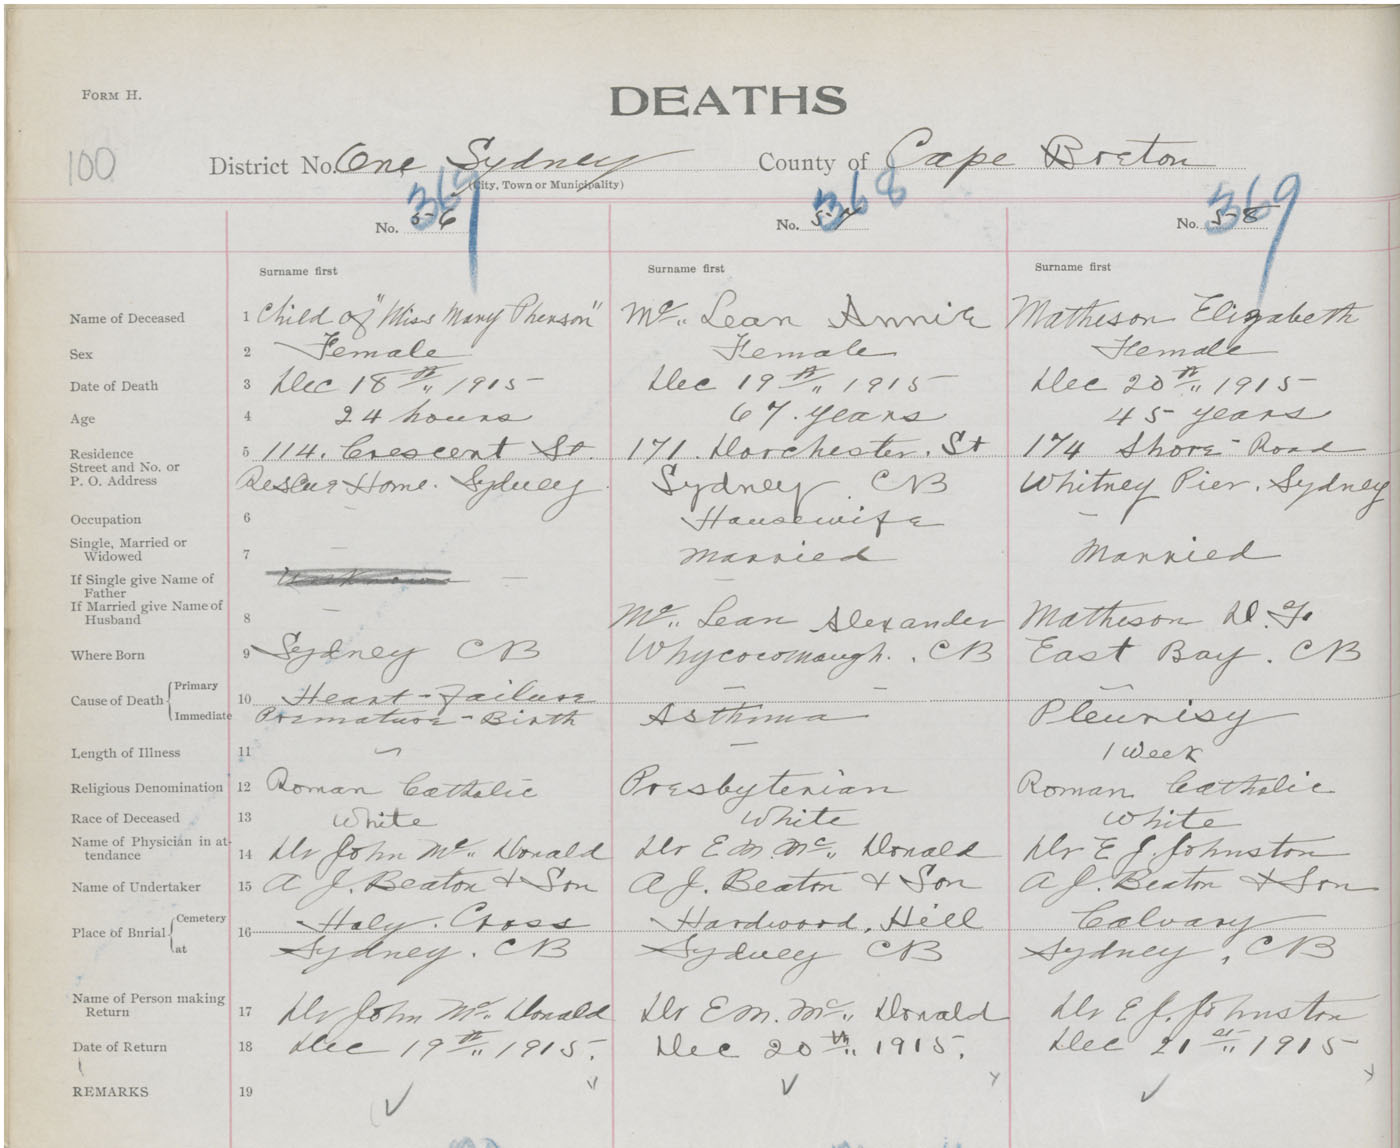 FORM H.
DEATHS
100
District No. One Sydney County of Cape Breton
(City, Town or Municipality)
369 368 369
No. 56 No. 57 No. 58
Surname first Surname first Surname first
Name of Deceased 1 Child of "Miss Mary Pherson" Mc Lean Annie Matheson Elizabeth
Sex 2 Female Female Female
Date of Death 3 Dec 18th 1915 Dec 19th 1915 Dec 20th 1915
Age 4 24 hours 67 years 45 years
Residence 5 114. Crescent St. 171. Dorchester. St 174 Shore Road
Street and No. or
P. O. Address Rescue Home. Sydney Sydney. CB Whitney Pier. Sydney
Occupation 6 — Housewife —
Single, Married or
Widowed 7 — Married Married
If Single give Name of
Father Unknown — —
If Married give Name of
Husband 8 — Mc Lean Alexander Matheson D. F.
Where Born 9 Sydney CB Whycocomaugh. CB East Bay. CB
Cause of Death Primary 10 Heart-failure — — —
Immediate Premature-Birth Asthma Pleurisy
Length of Illness 11 — — 1 Week
Religious Denomination 12 Roman Catholic Presbyterian Roman Catholic
Race of Deceased 13 White White White
Name of Physician in at-
tendance 14 Dr John Mc Donald Dr E. M. Mc Donald Dr E J. Johnston
Name of Undertaker 15 A J. Beaton & Son A J. Beaton & Son A J. Beaton & Son
Place of Burial Cemetery 16 Holy. Cross Hardwood. Hill Calvary
at Sydney. CB Sydney CB Sydney, CB
Name of Person making
Return 17 Dr John Mc Donald Dr E M. Mc Donald Dr E J. Johnston
Date of Return 18 Dec 19th 1915. Dec 20th 1915. Dec 21st 1915
REMARKS 19 ✓ ✓ ✓